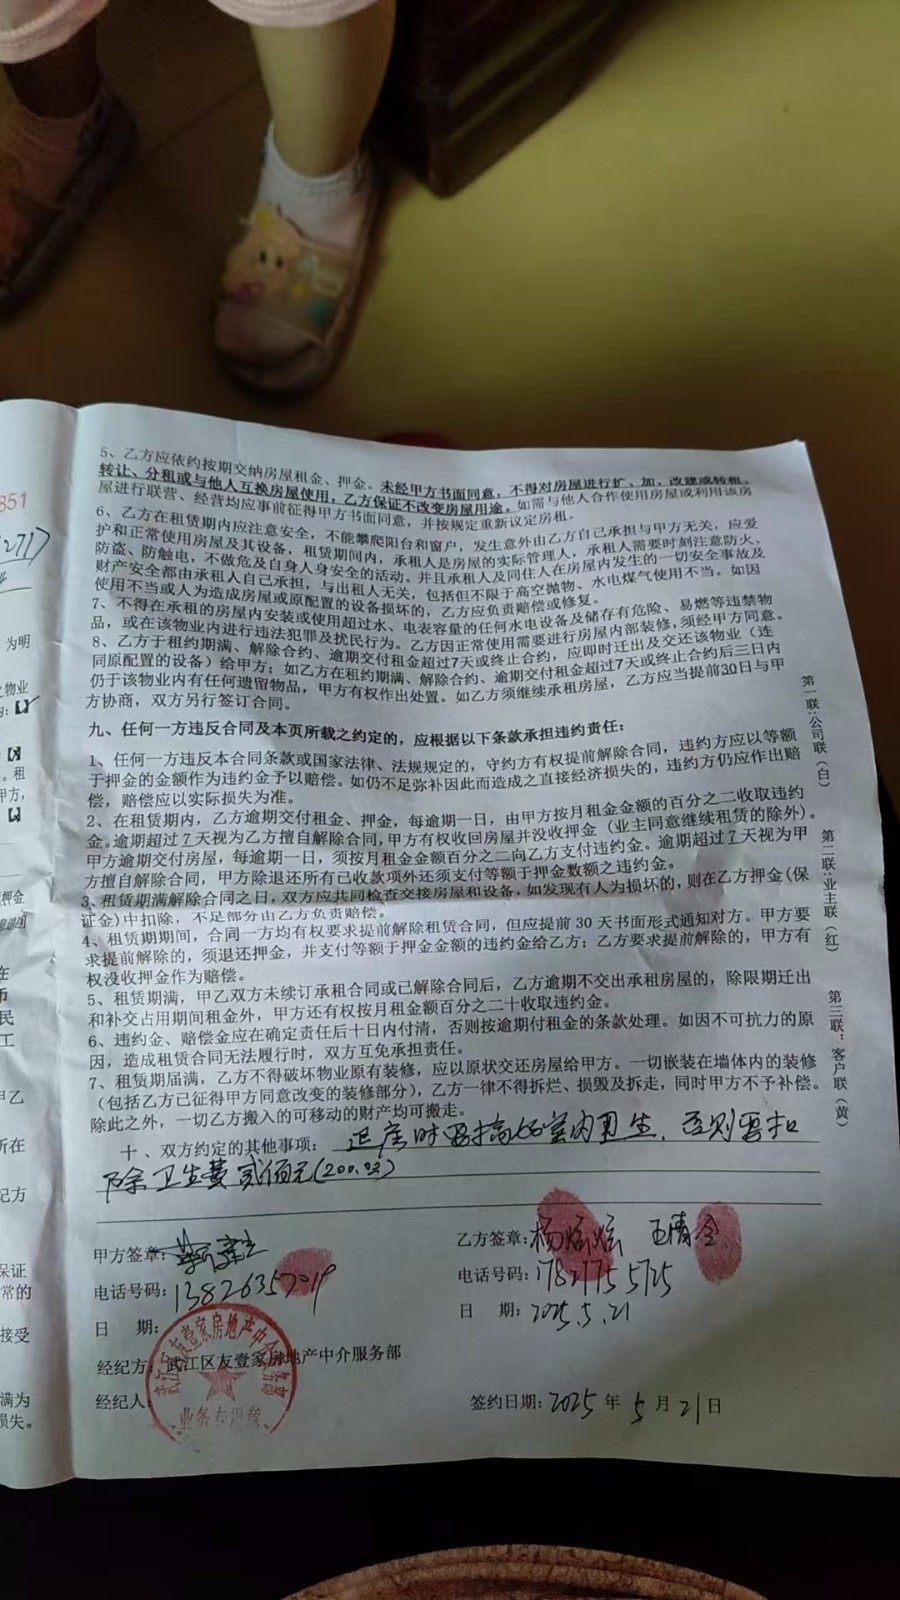 5、乙方应依约按期交纳房屋租金、押金。未经甲方书面同意，不得对房屋进行扩、加、改建或转租、
转让、分租或与他人互换房屋使用，乙方保证不改变房屋用途。如需与他人合作使用房屋或利用该房
屋进行联营、经营均应事前征得甲方书面同意，并按规定重新议定房租。
6、乙方在租赁期内应注意安全，不能攀爬阳台和窗户，发生意外由乙方自己承担与甲方无关，应爱
护和正常使用房屋及其设备，租赁期间内，承租人是房屋的实际管理人，承租人需要时刻注意防火、
防盗、防触电，不做危及自身人身安全的活动。并且承租人及同住人在房屋内发生的一切安全事故及
财产安全都由承租人自己承担，与出租人无关，包括但不限于高空抛物、水电煤气使用不当。如因
使用不当或人为造成房屋或原配置的设备损坏的，乙方应负责赔偿或修复。
7、不得在承租的房屋内安装或使用超过水、电表容量的任何水电设备及储存有危险、易燃等违禁物
品，或在该物业内进行违法犯罪及扰民行为。乙方因正常使用需要进行房屋内部装修，须经甲方同意。
8、乙方于租约期满、解除合约、逾期交付租金超过7天或终止合约，应即时迁出及交还该物业（连
同原配置的设备）给甲方；如乙方在租约期满、解除合约、逾期交付租金超过7天或终止合约后三日内
仍于该物业内有任何遗留物品，甲方有权作出处置。如乙方须继续承租房屋，乙方应当提前30日与甲
方协商，双方另行签订合同。
九、任何一方违反合同及本页所载之约定的，应根据以下条款承担违约责任：
1、任何一方违反本合同条款或国家法律、法规规定的，守约方有权提前解除合同，违约方应以等额
于押金的金额作为违约金予以赔偿。如仍不足弥补因此而造成之直接经济损失的，违约方仍应作出赔
偿，赔偿应以实际损失为准。
2、在租赁期内，乙方逾期交付租金、押金，每逾期一日，由甲方按月租金金额的百分之二收取违约
金。逾期超过 7 天视为乙方擅自解除合同，甲方有权收回房屋并没收押金（业主同意继续租赁的除外）。
甲方逾期交付房屋，每逾期一日，须按月租金金额百分之二向乙方支付违约金。逾期超过 7 天视为甲
方擅自解除合同，甲方除退还所有已收款项外还须支付等额于押金数额之违约金。
3、租赁期满解除合同之日，双方应共同检查交接房屋和设备，如发现有人为损坏的，则在乙方押金（保
证金）中扣除，不足部分由乙方负责赔偿。
4、租赁期期间，合同一方均有权要求提前解除租赁合同，但应提前 30 天书面形式通知对方。甲方要
求提前解除的，须退还押金，并支付等额于押金金额的违约金给乙方；乙方要求提前解除的，甲方有
权没收押金作为赔偿。
5、租赁期满，甲乙双方未续订承租合同或已解除合同后，乙方逾期不交出承租房屋的，除限期迁出
和补交占用期间租金外，甲方还有权按月租金额百分之二十收取违约金。
6、违约金、赔偿金应在确定责任后十日内付清，否则按逾期付租金的条款处理。如因不可抗力的原
因，造成租赁合同无法履行时，双方互免承担责任。
7、租赁期届满，乙方不得破坏物业原有装修，应以原状交还房屋给甲方。一切嵌装在墙体内的装修
（包括乙方已征得甲方同意改变的装修部分），乙方一律不得拆烂、损毁及拆走，同时甲方不予补偿。
除此之外，一切乙方搬入的可移动的财产均可搬走。
十、双方约定的其他事项： 退房时要搞好室内卫生，否则要扣
除卫生费贰佰元（200.00）
甲方签章：
电话号码：13826357019
日 期：
乙方签章：杨 王情
电话号码：17827755725
日 期：2025.5.21
经纪方：武江区友壹家房地产中介服务部
经纪人：
签约日期：2025 年 5 月 21 日
武江区友壹家房地产中介服务部
业务专用章
第一联：公司联（白）
第二联：业主联（红）
第三联：客户联（黄）
851
271)
为明
物业
租
甲方，
押金
在
币
民
工
甲乙
所在
纪方
保证
常的
接受
满为
损失。